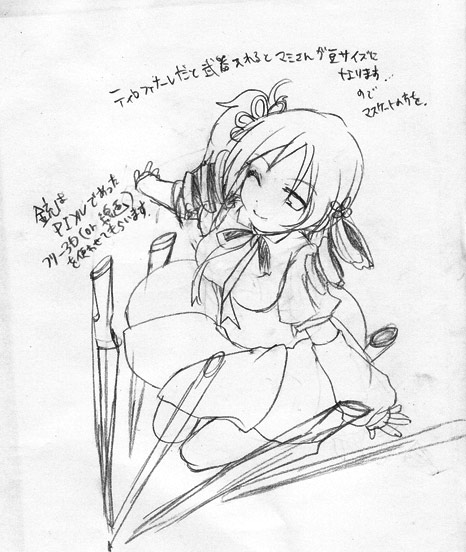 ティロフィナーレだと武器入れるとマミさんが豆サイズに
なります…
ので
マスケットの方を。
銃は
PIXルであった
フリー3D(or 線画)
を使わせてもらいます。